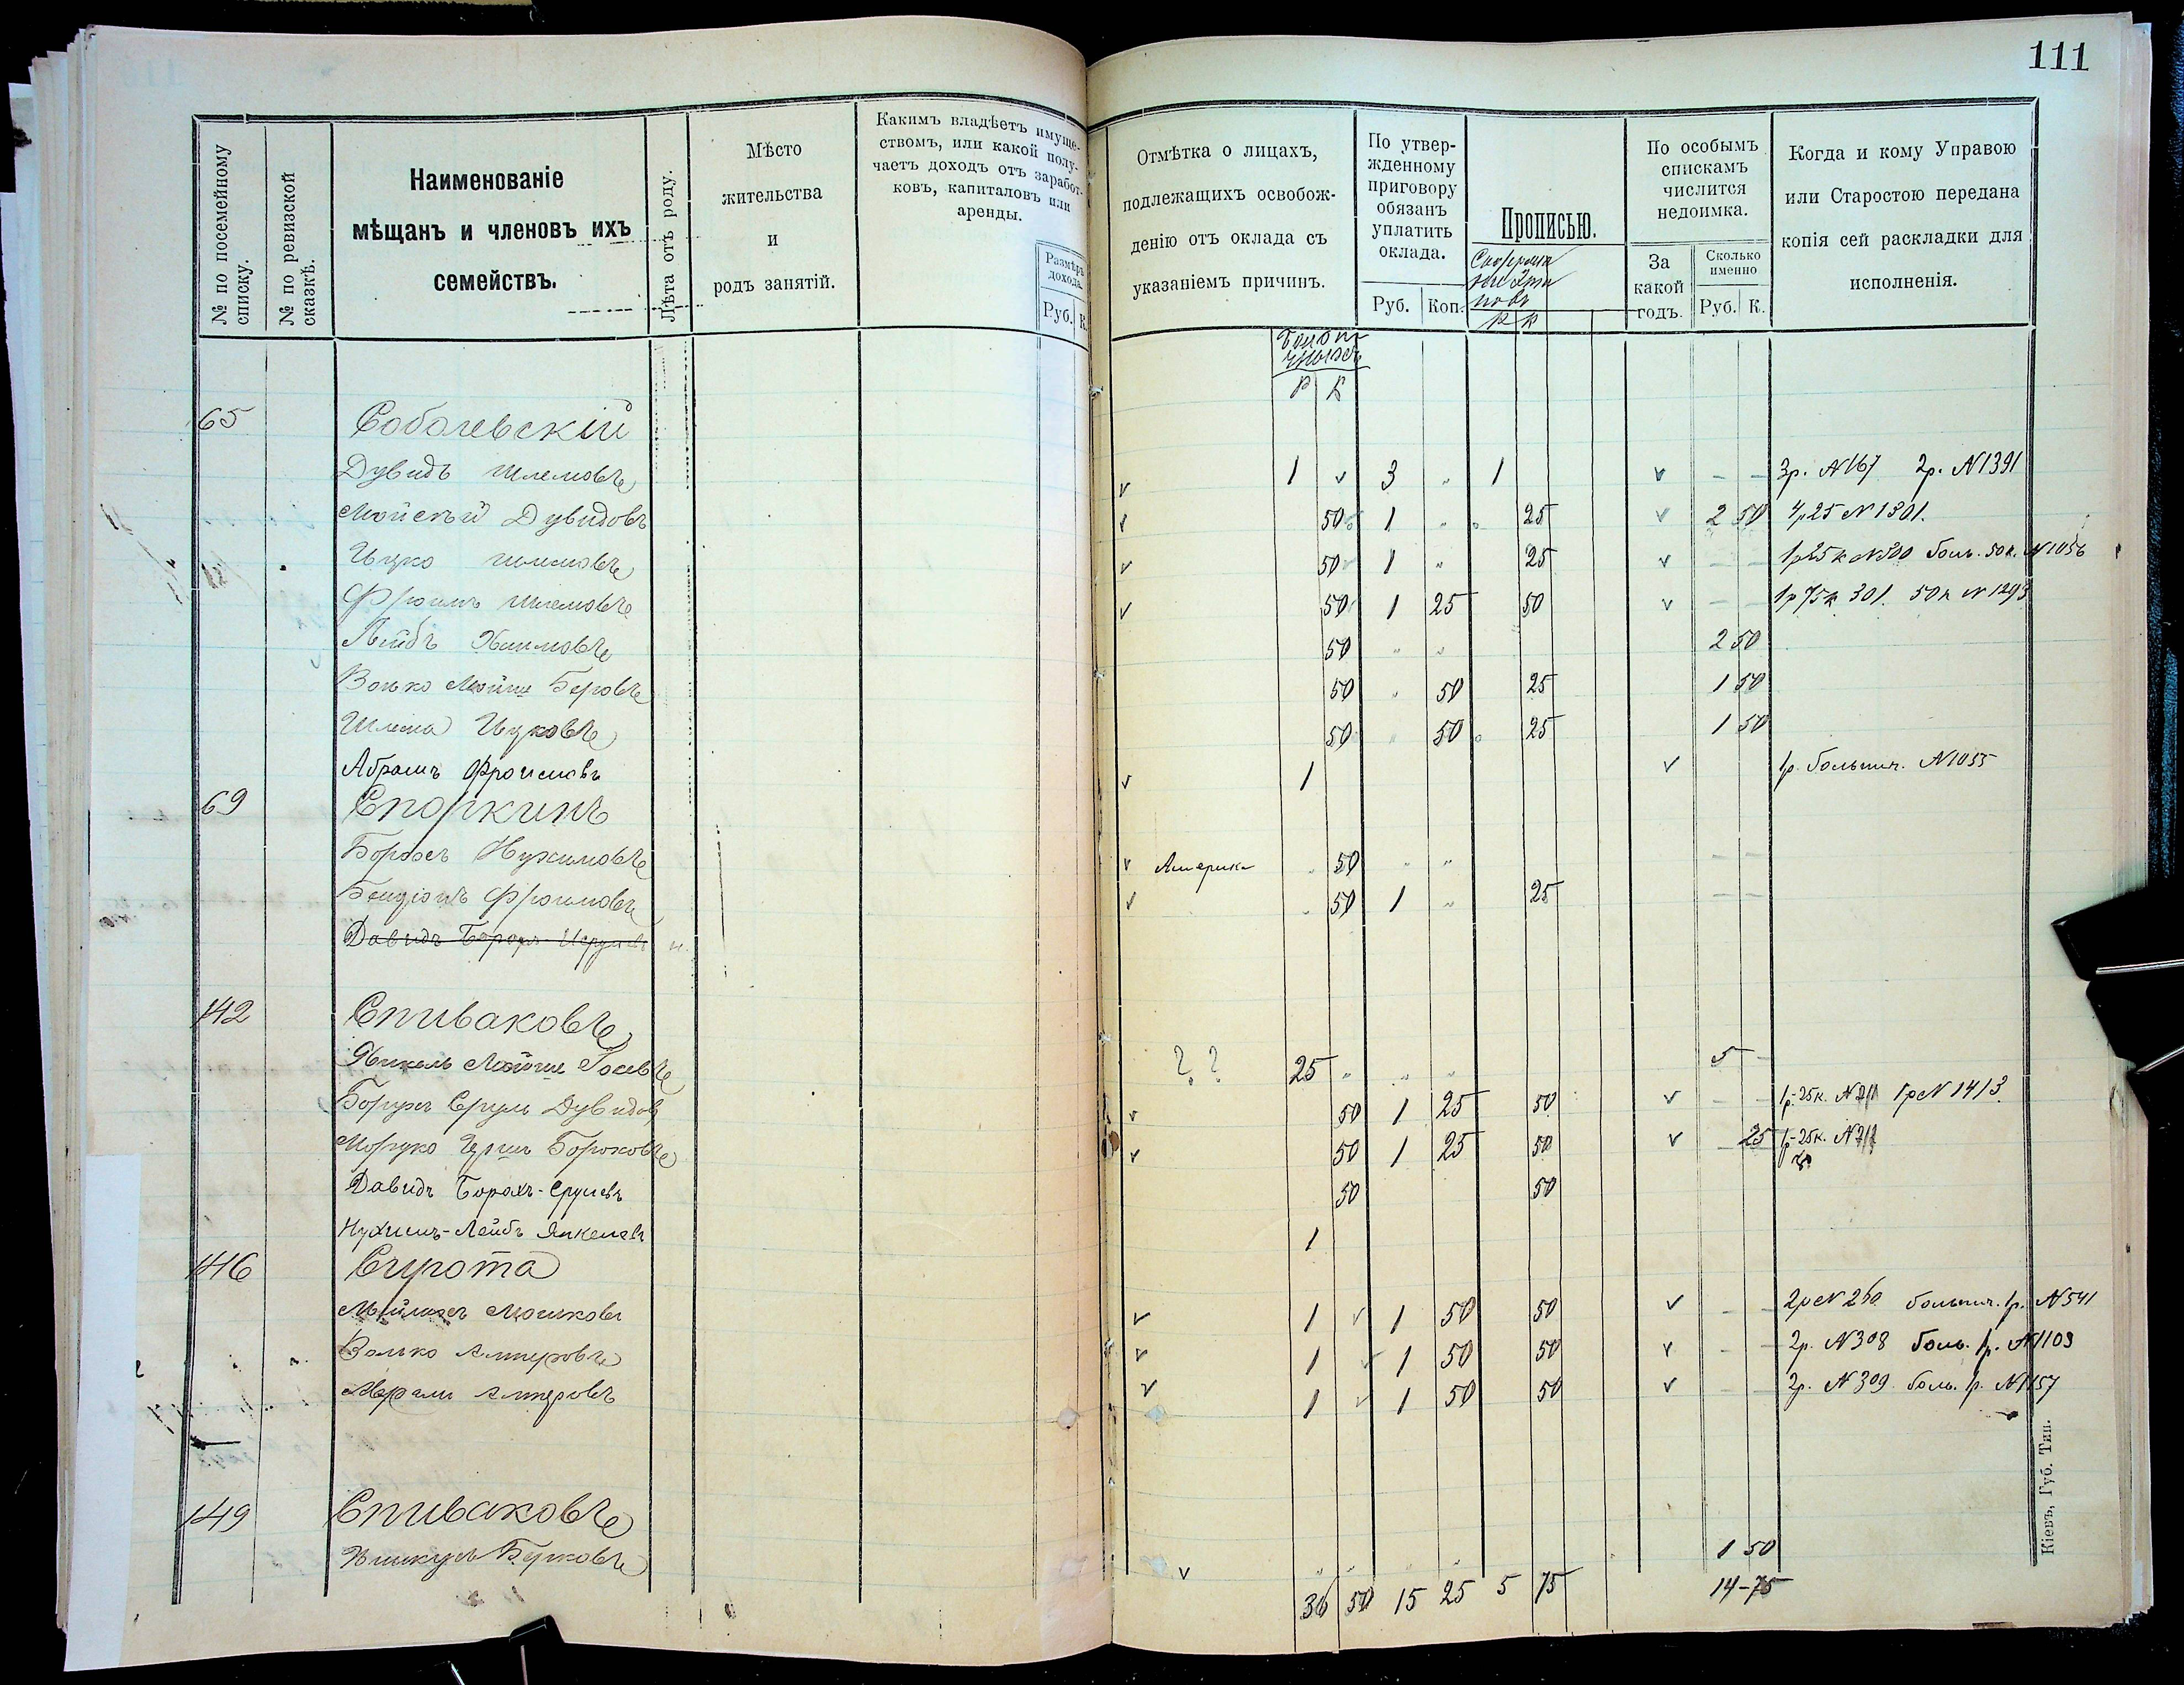 111
№ по посемейному списку.
№ по ревизской сказкѣ.
Наименованіе
мѣщанъ и членовъ ихъ
семействъ.
Лѣта отъ роду.
Мѣсто
жительства
и
родъ занятій.
Какимъ владѣетъ имуще-
ствомъ, или какой полу-
чаетъ доходъ отъ заработ-
ковъ, капиталовъ или
аренды.
Размѣръ дохода.
Руб. К.
Отмѣтка о лицахъ,
подлежащихъ освобож-
денію отъ оклада съ
указаніемъ причинъ.
По утвер-
жденному
приговору
обязанъ
уплатить
оклада.
Руб. Коп.
Прописью.
Р К
По особымъ
спискамъ
числится
недоимка.
За
какой
годъ.
Сколько
именно
Руб. К.
Когда и кому Управою
или Старостою передана
копія сей раскладки для
исполненія.
Р К
65 Соболевскій
Дувидъ Шлемовъ v 1 v 3 " 1 v – – 3р. №167 2р. №1391
Мойсѣй Дувидовъ v 50 1 " " 25 v 2 50 4р25 №1301.
Ицко Шлемовъ v 50 1 " 25 v – – 1р25к №500 боль. 50к. №1056
Фроимъ Шлемовъ v 50 1 25 50 v – – 1р75к 301. 50к №1293
Лейбъ Хаимовъ 50 " " 2 50
Волько Мойше Беровъ 50 " 50 25 1 50
Шлема Ицковъ 50 " 50 25 1 50
Абрамъ Фроимовъ v 1 v 1р. больнич. №1055
69 Споркинъ
Борохъ Нухимовъ v Америка 50 " " – –
Бенціонъ Фроимовъ v 50 1 " 25 – –
Давидъ Борохъ-Исрулевъ
142 Спиваковъ
Янкель Мойше Іосевъ ? ? 25 " " " 5 –
Борухъ Сруль Дувидов v 50 1 25 50 v – – 1р-25к. №211 1р №1413.
Мордко Гершъ Бороховъ v 50 1 25 50 v – 25 1р-25к. №212
Давидъ Борохъ-Срулевъ 50 50
Нухимъ-Лейбъ Янкелевъ 1
146 Сирота
Мошковъ v 1 v 1 50 50 v – – 2р №260 больнич. 1р. №541
Волько Алтеровъ v 1 v 1 50 50 v – – 2р. №308 боль. 1р. №1109
Алтеровъ v 1 v 1 50 50 v – – 2р. №309 боль. 1р. №1157
149 Спиваковъ
Берковъ v " " " " 1 50
36 50 15 25 5 75 14-75
Кіевъ, Губ. Тип.